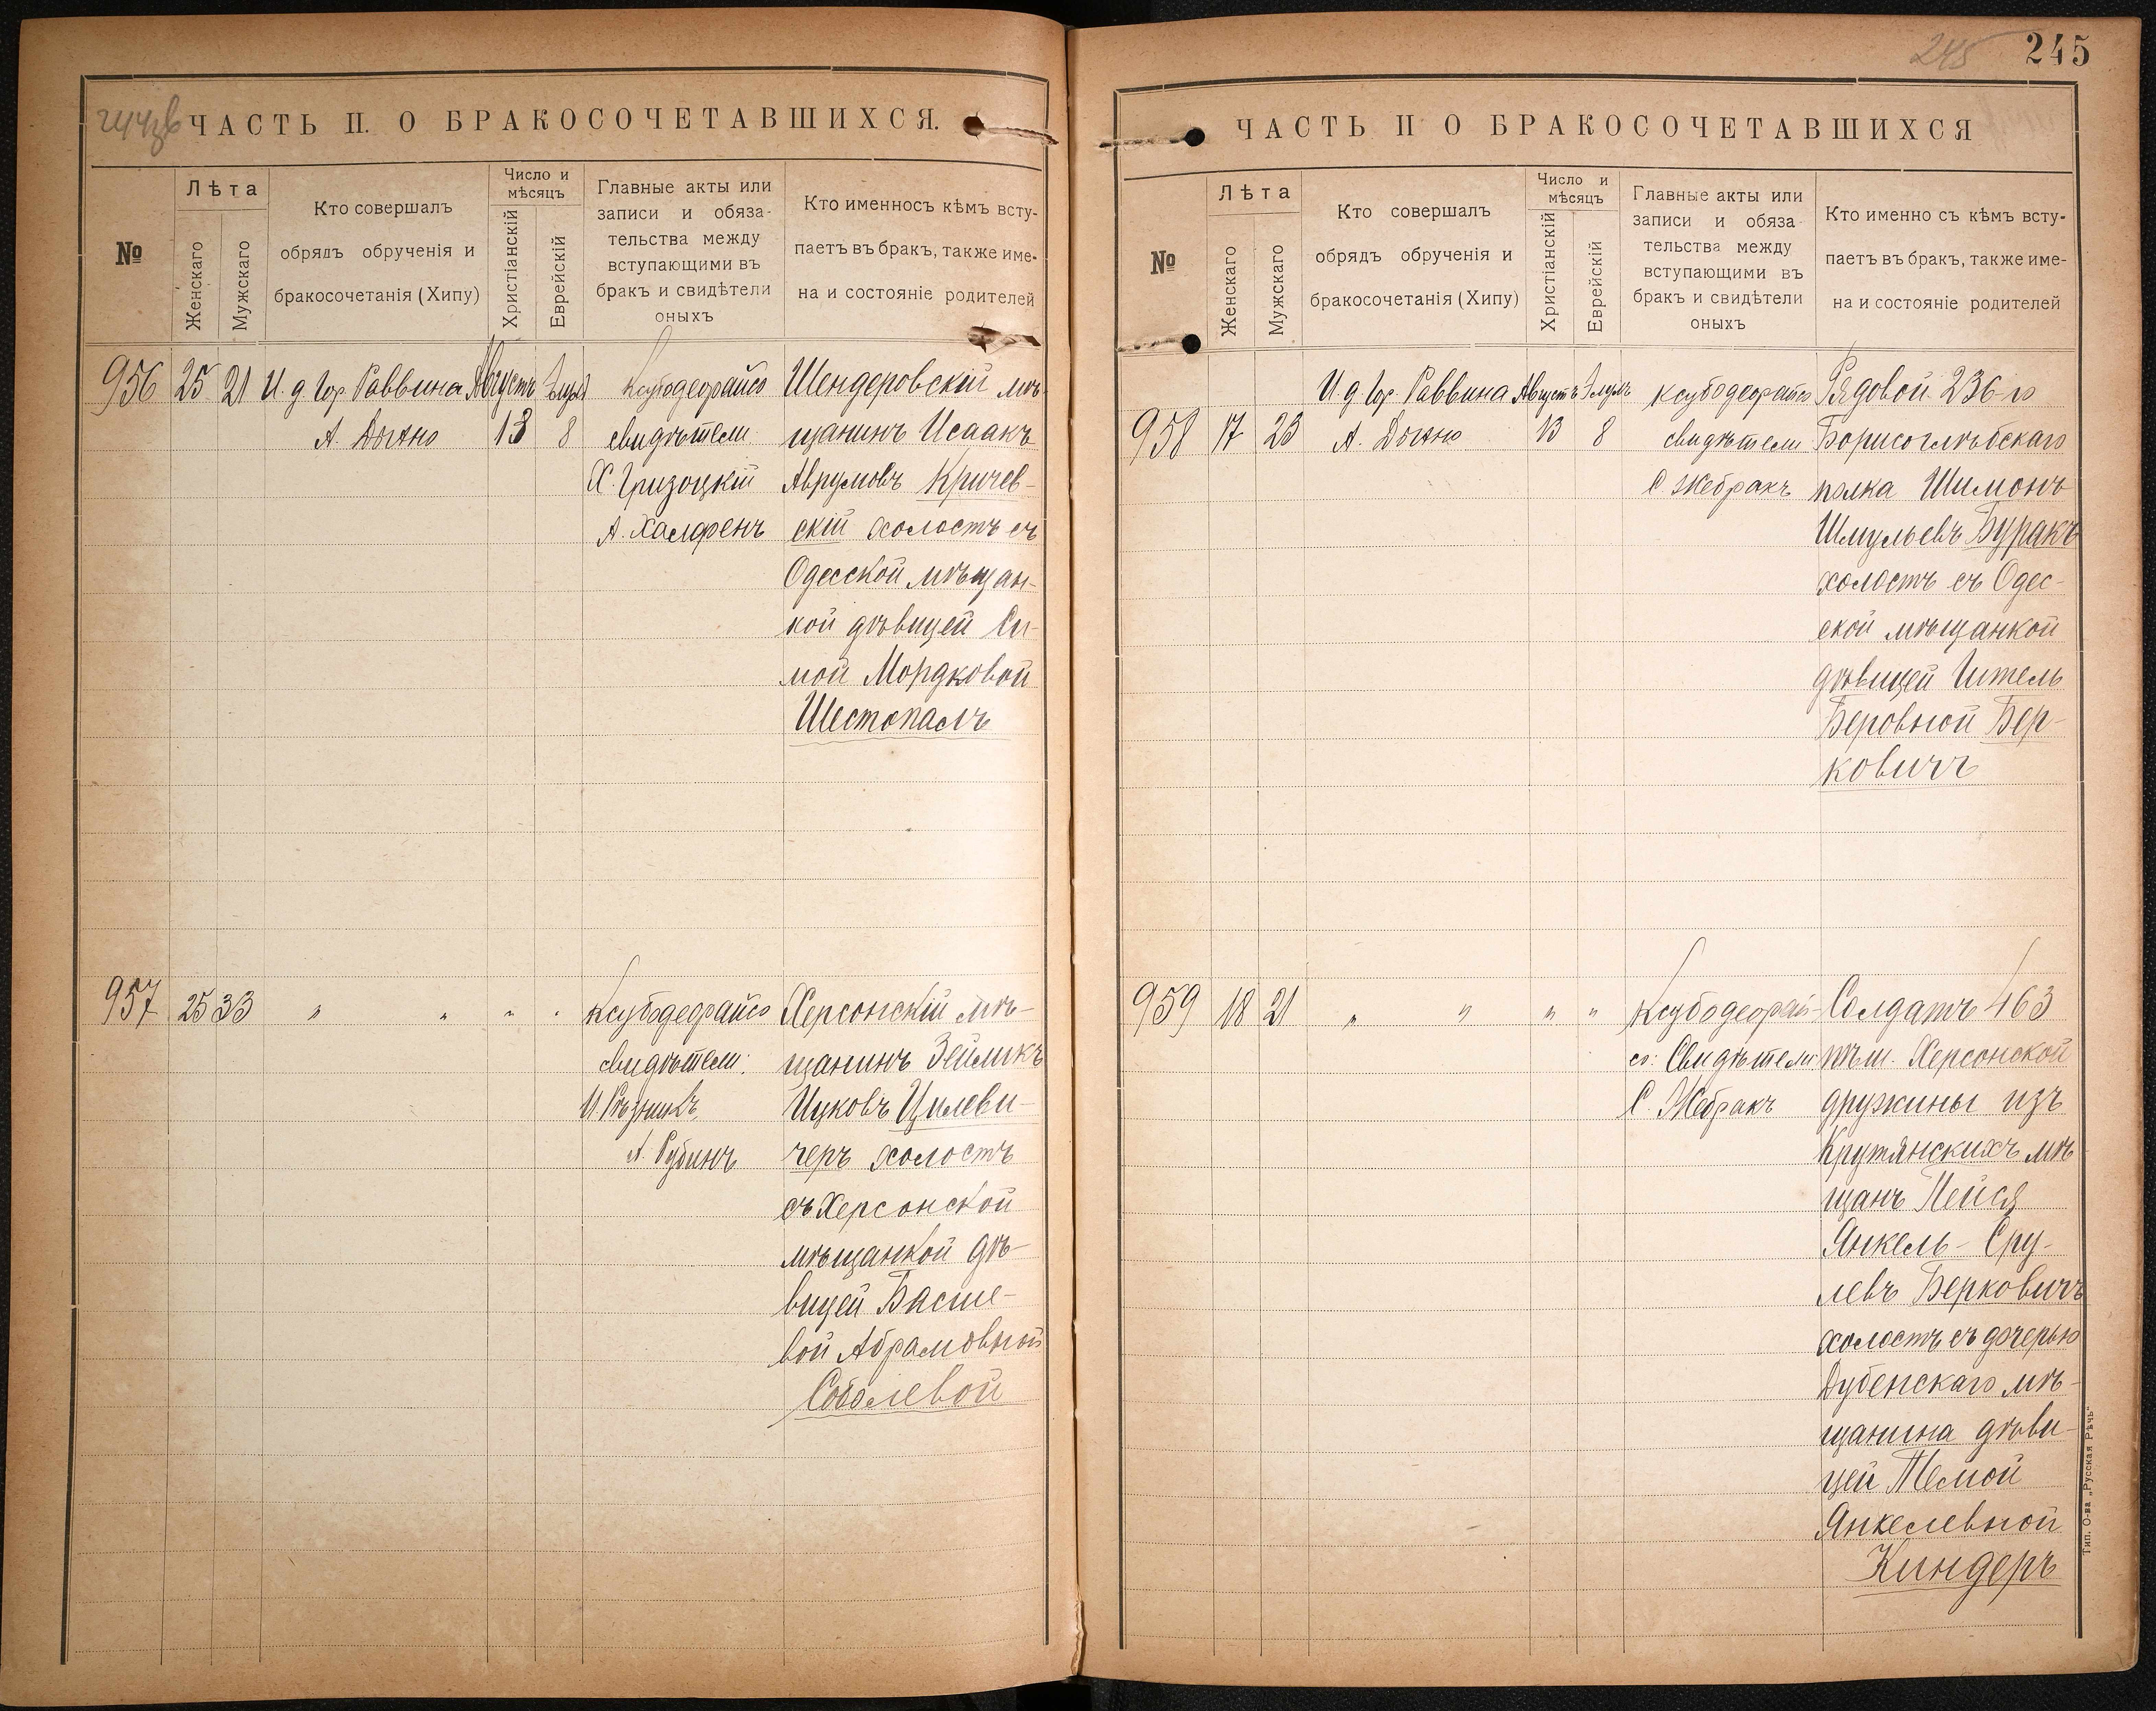 245 245
ЧАСТЬ II. О БРАКОСОЧЕТАВШИХСЯ.
№
Лѣта
Женскаго
Мужскаго
Кто совершалъ
обрядъ обрученія и
бракосочетанія (Хипу)
Число и
мѣсяцъ
Христіанскій
Еврейскій
Главные акты или
записи и обяза-
тельства между
вступающими въ
бракъ и свидѣтели
оныхъ
Кто именносъ кѣмъ всту-
паетъ въ бракъ, также име-
на и состояніе родителей
956 25 21 И. д. Гор. Раввина Августъ Элулъ Ксубодеорайсо Шендеровскій мѣ-
13 8 свидѣтели щанинъ Исаакъ
Аврумовъ Кричев-
А. скій холостъ съ
Одесской мѣщан-
кой дѣвицей Си-
мой Мордковой
Шестопалъ
957 25 33 " " " " Ксубодеорайсо Херсонскій мѣ-
свидѣтели: щанинъ Зейликъ
И. Рѣзникъ, Ицковъ Цилеви-
А. Рубинъ черъ холостъ
съ Херсонской
мѣщанкой дѣ-
вицей Басше-
вой Абрамовной
Соболевой
ЧАСТЬ II О БРАКОСОЧЕТАВШИХСЯ
№
Лѣта
Женскаго
Мужскаго
Кто совершалъ
обрядъ обрученія и
бракосочетанія (Хипу)
Число и
мѣсяцъ
Христіанскій
Еврейскій
Главные акты или
записи и обяза-
тельства между
вступающими въ
бракъ и свидѣтели
оныхъ
Кто именно съ кѣмъ всту-
паетъ въ бракъ, также име-
на и состояніе родителей
И д Гор. Раввина Августъ Элулъ Ксубодеорайсо Рядовой 236-го
958 17 23 13 8 свидѣтели Борисоглѣбскаго
С. Жебракъ полка Шимонъ
Шмульевъ Буракъ
холостъ съ Одес-
ской мѣщанкой
дѣвицей Итель
Беровной Бер-
ковичъ
959 18 21 " " " " Ксубодеорай- Солдатъ 463
со: Свидѣтели: пѣш. Херсонской
С. Жебракъ дружины изъ
Крутянскихъ мѣ-
щанъ Пейся
Янкель-Сру-
левъ Берковичъ
холостъ съ дочерью
Дубенскаго мѣ-
щанина дѣви-
цей Темой
Янкелевной
Киндеръ
Тип. О-ва „Русская Рѣчь“